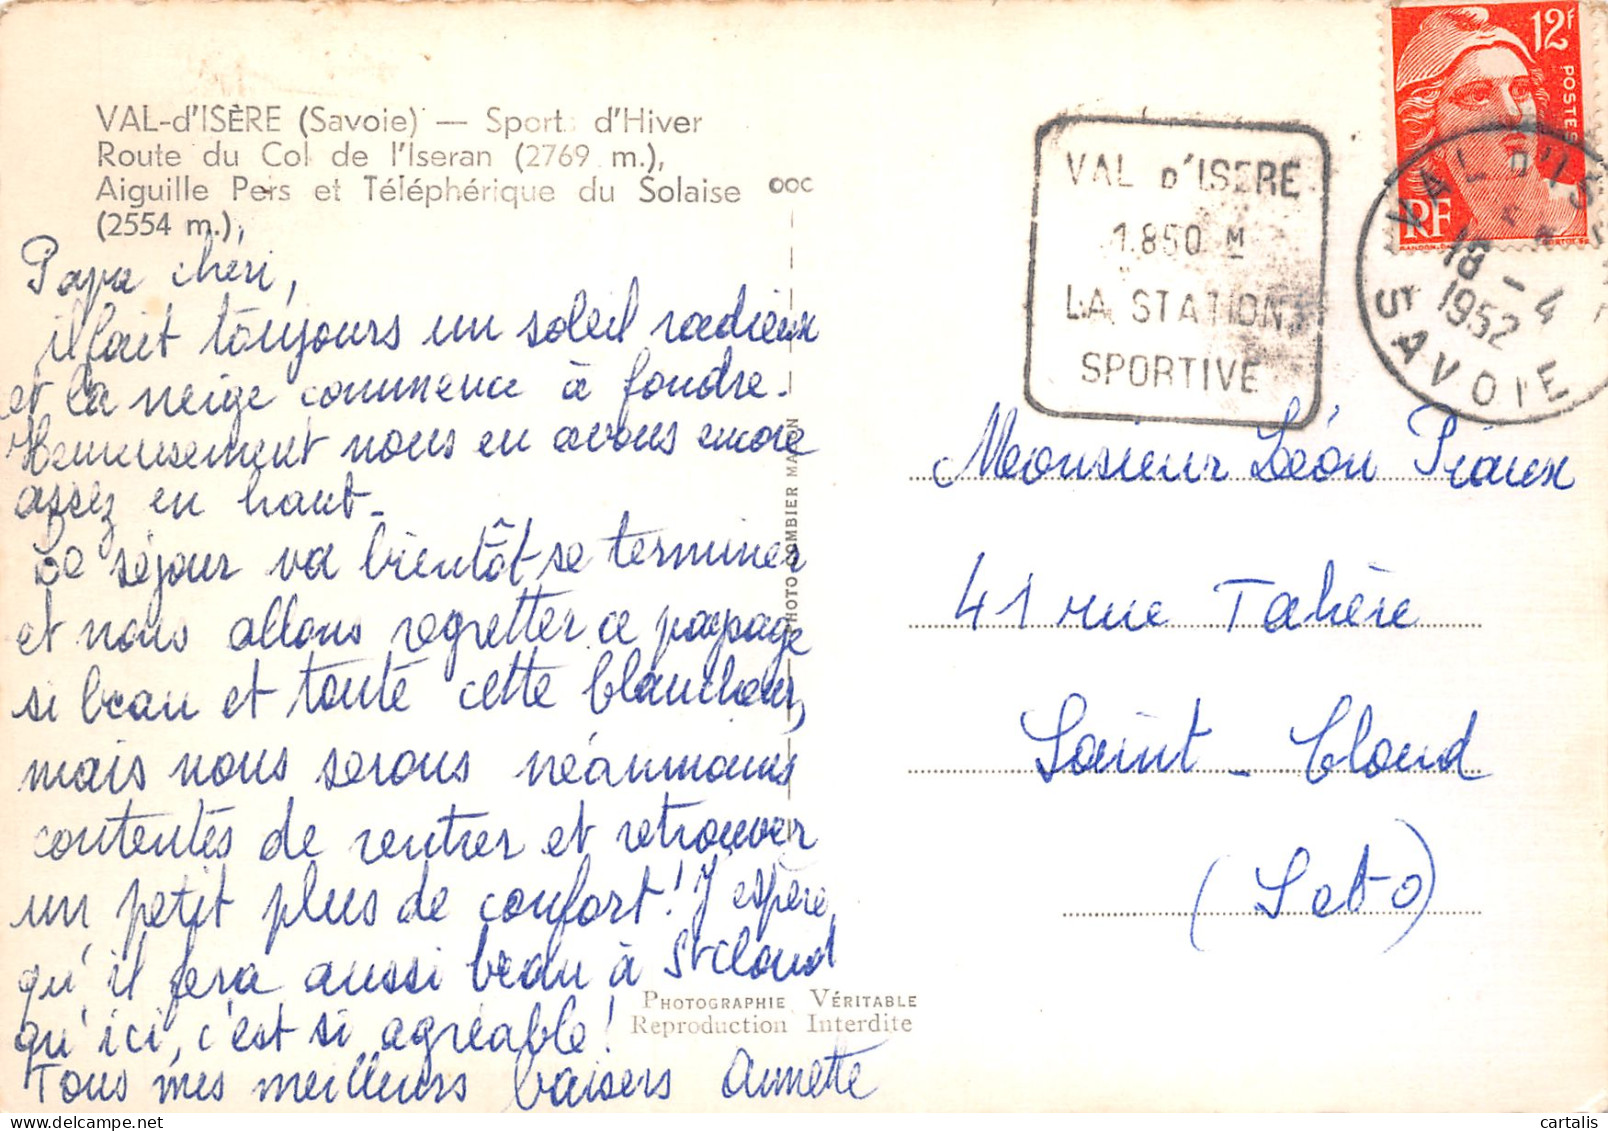 VAL-d'ISÈRE (Savoie) — Sports d'Hiver
Route du Col de l'Iseran (2769 m.),
Aiguille Pers et Téléphérique du Solaise
(2554 m.).
Papa chéri,
il fait toujours un soleil radieux
et la neige commence à fondre.
Heureusement nous en avons encore
assez en haut.
Le séjour va bientôt se terminer
et nous allons regretter ce paysage
si beau et toute cette blancheur,
mais nous serons néanmoins
contentes de rentrer et retrouver
un petit plus de confort! J'espère
qu'il fera aussi beau à St Cloud
qu'ici, c'est si agréable!
Tous mes meilleurs baisers Annette
PHOTO COMBIER MACON
PHOTOGRAPHIE VÉRITABLE
Reproduction Interdite
VAL D'ISERE
1.850 M
LA STATION
SPORTIVE
12F
POSTES
RF
VAL D'ISERE
18 - 4
1952
SAVOIE
Monsieur Léon Piaux
41 rue Tahère
Saint-Cloud
(S et O)
cartalis